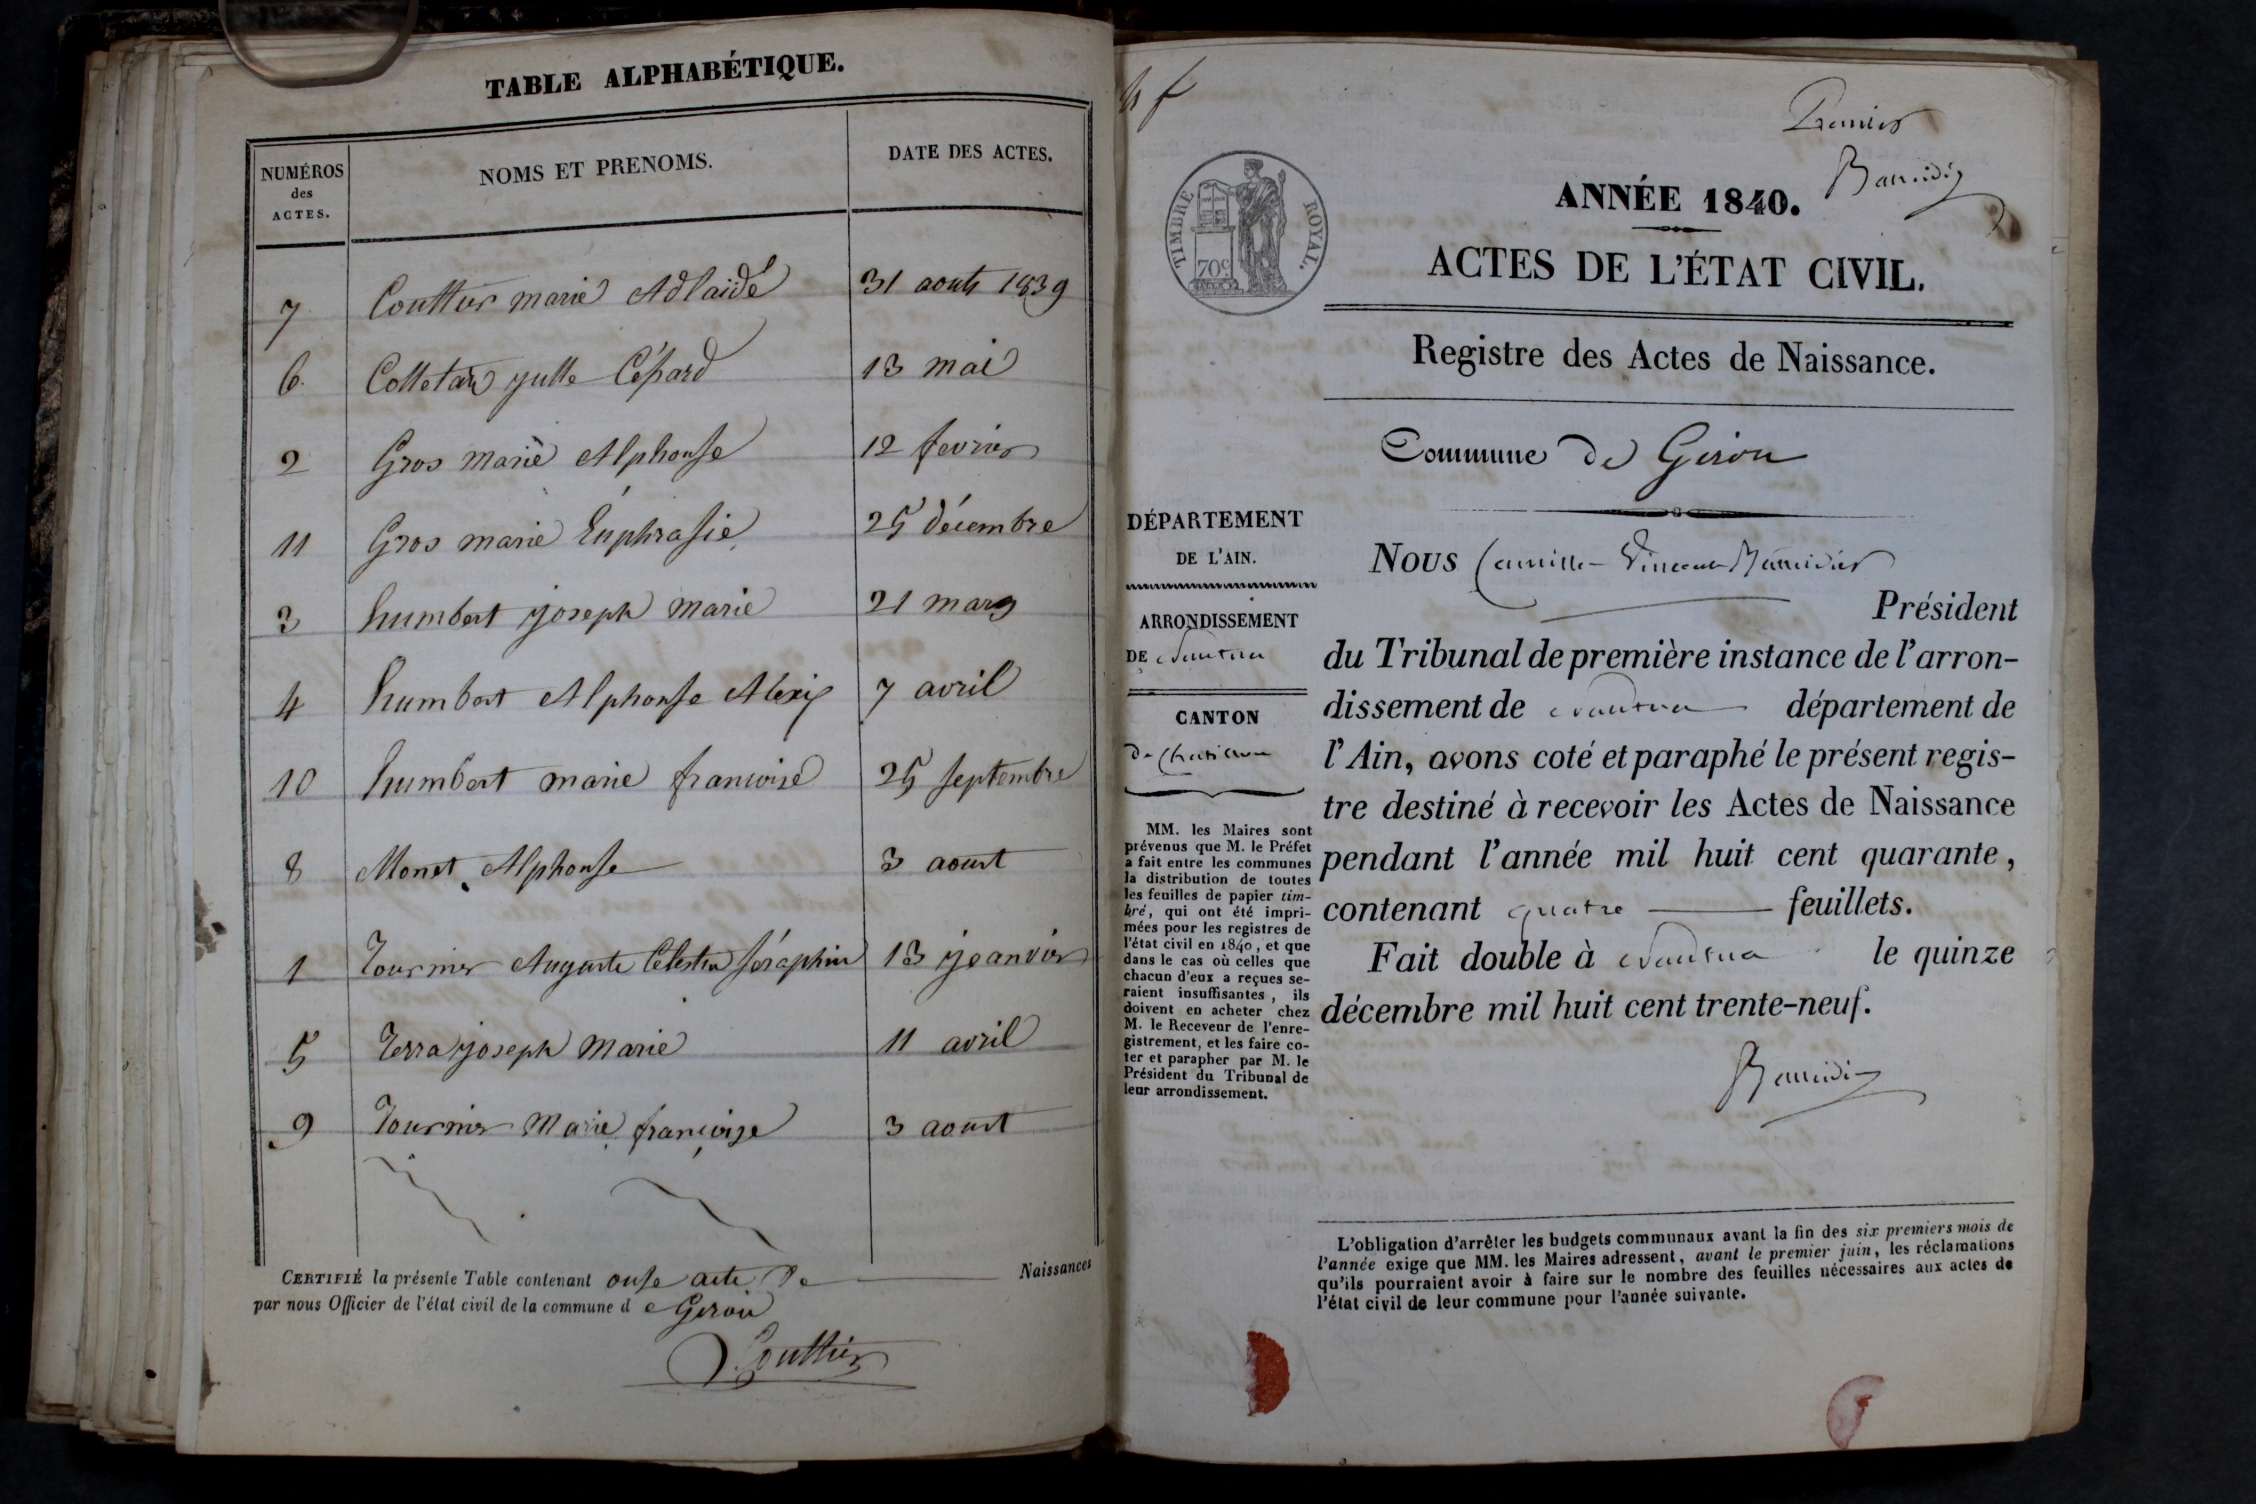 TABLE ALPHABÉTIQUE.
NUMÉROS des ACTES. NOMS ET PRENOMS. DATE DES ACTES.
7 Couttier marie Adlaide 31 aout 1839
6 Colletaz julle Cépard 13 mai
2 Gros marie Alphonse 12 fevrier
11 Gros marie Euphrasie 25 décembre
3 humbert joseph marie 21 mars
4 humbert Alphonse Alexis 7 avril
10 humbert marie francoise 25 septembre
8 Monet Alphonse 3 aout
1 Tournier Auguste Celestin Séraphin 13 jeanvier
5 Terra joseph Marie 11 avril
9 Tournier Marie françoise 3 aout
CERTIFIÉ la présente Table contenant onse acte De Naissances
par nous Officier de l'état civil de la commune d e Giron
Couttier
Premier
ANNÉE 1840.
TIMBRE ROYAL.
70c
ACTES DE L'ÉTAT CIVIL.
Registre des Actes de Naissance.
Commune de Giron
DÉPARTEMENT
DE L'AIN.
ARRONDISSEMENT
DE Nantua
CANTON
de Chatillon
MM. les Maires sont
prévenus que M. le Préfet
a fait entre les communes
la distribution de toutes
les feuilles de papier tim-
bré, qui ont été impri-
mées pour les registres de
l'état civil en 1840, et que
dans le cas où celles que
chacun d'eux a reçues se-
raient insuffisantes, ils
doivent en acheter chez
M. le Receveur de l'enre-
gistrement, et les faire co-
ter et parapher par M. le
Président du Tribunal de
leur arrondissement.
NOUS Camille Vincent
Président
du Tribunal de première instance de l'arron-
dissement de Nantua département de
l'Ain, avons coté et paraphé le présent regis-
tre destiné à recevoir les Actes de Naissance
pendant l'année mil huit cent quarante,
contenant quatre feuillets.
Fait double à Nantua le quinze
décembre mil huit cent trente-neuf.
L'obligation d'arrêter les budgets communaux avant la fin des six premiers mois de
l'année exige que MM. les Maires adressent, avant le premier juin, les réclamations
qu'ils pourraient avoir à faire sur le nombre des feuilles nécessaires aux actes de
l'état civil de leur commune pour l'année suivante.